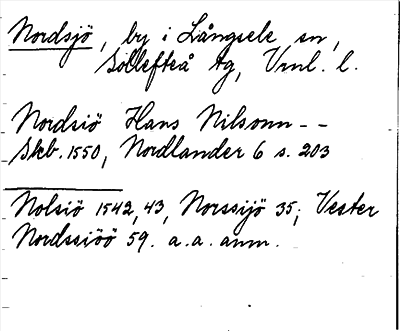 Nordsjö, by i Långsele sn,
Sollefteå tg, Vrnl. l.
Nordsiö Hans Nilsonn - -
Skb. 1550, Nordlander 6 s. 203
Nolsiö 1542, 43, Norssijö 35; Vester
Nordssiöö 59. a. a. anm.